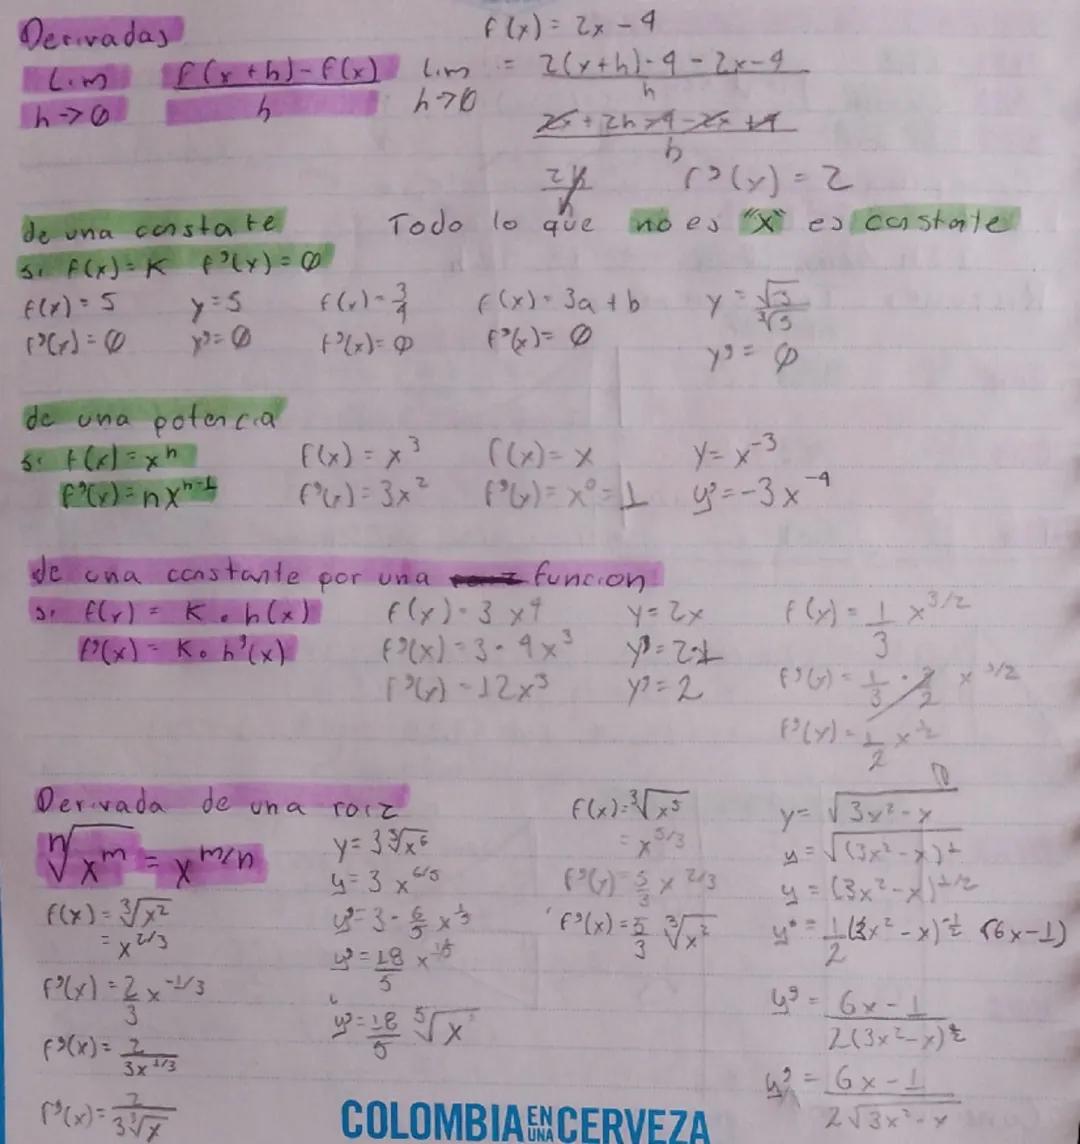 Derivadas
f(x) = 2x - 4
Lim h→0 f(x+h)-f(x) / h
Lim h→0 = 2(x+h)-4-2x-4 / h
2x+2h-4-2x+4 / h
2h / h f'(x) = 2
de una constate Todo lo que no es "x" es constate
si f(x)=K f'(x)=0
f(x)=5 y=5 f(x)=3/4 f(x)=3a+b y=√3/∛5
f'(x)=0 y'=0 f'(x)=0 f'(x)=0
y'=0
de una potencia
si f(x)=xⁿ f(x)=x³ f(x)=x y=x⁻³
f'(x)=nxⁿ⁻¹ f'(x)=3x² f'(x)=x⁰=1 y'=-3x⁻⁴
de una constante por una funcion
si f(x)=K.h(x) f(x)=3x4 y=2x f(x)=1/3 x^3/2
f'(x)=K.h'(x) f'(x)=3·4x³ y'=2·1
f'(x)=12x³ y'=2
f'(x)=1/2 x^1/2
Derivada de una raiz
ⁿ√x^m = x^m/n
f(x)=∛x²
=x^2/3
f'(x)=2/3 x^-1/3
f'(x)=2/3x^1/3
f'(x)=2/3∛x
y=3 x^6/5
y'=18/5 x^1/5
y'=18/5 ⁵√x
f(x)=∛x⁵
=x^5/3
f'(x)=5/3 x^2/3
f'(x)=5/3 ∛x²
y=√3x²-x
y=√(3x²-x)¹
y=(3x²-x)^1/2
y'=1/2(3x²-x)^-1/2 (6x-1)
y'=6x-1 / 2(3x²-x)^1/2
y'=6x-1 / 2√3x²-x
COLOMBIA EN UNA CERVEZA